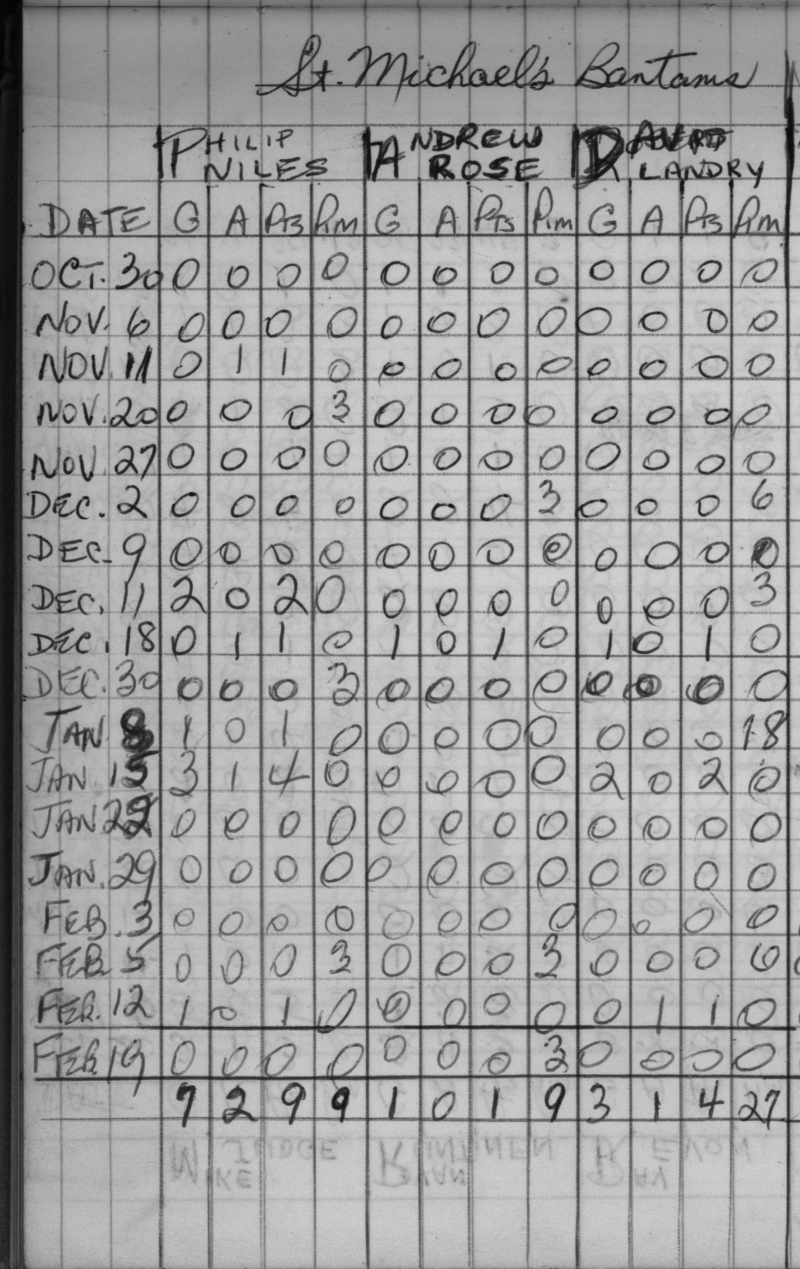 St. Michael's Bantams
PHILIP NILES ANDREW ROSE LANDRY
DATE G A Pts Pim G A Pts Pim G A Pts Pim
OCT. 30 0 0 0 0 0 0 0 0 0 0 0 0
NOV. 6 0 0 0 0 0 0 0 0 0 0 0 0
NOV. 11 0 1 1 0 0 0 0 0 0 0 0 0
NOV. 20 0 0 0 3 0 0 0 0 0 0 0 0
NOV 27 0 0 0 0 0 0 0 0 0 0 0 0
DEC. 2 0 0 0 0 0 0 0 3 0 0 0 6
DEC. 9 0 0 0 0 0 0 0 0 0 0 0 0
DEC. 11 2 0 2 0 0 0 0 0 0 0 0 3
DEC. 18 0 1 1 0 1 0 1 0 1 0 1 0
DEC. 30 0 0 0 3 0 0 0 0 0 0 0 0
JAN 8 1 0 1 0 0 0 0 0 0 0 0 18
JAN 15 3 1 4 0 0 0 0 0 2 0 2 0
JAN 22 0 0 0 0 0 0 0 0 0 0 0 0
JAN. 29 0 0 0 0 0 0 0 0 0 0 0 0
FEB. 3 0 0 0 0 0 0 0 0 0 0 0 0
FEB 5 0 0 0 3 0 0 0 3 0 0 0 0
FEB. 12 1 0 1 0 0 0 0 0 0 1 1 0
FEB 19 0 0 0 0 0 0 0 3 0 0 0 0
7 2 9 9 1 0 1 9 3 1 4 27